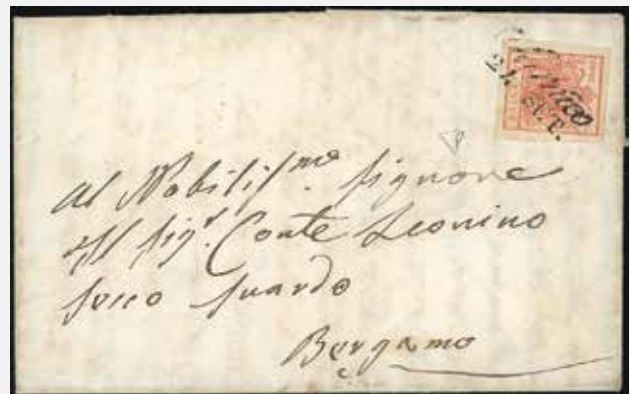 21 SET.
Al Nobiliſmo. Signore
Il Sigr. Conte Leonino
Secco Suardo
Bergamo